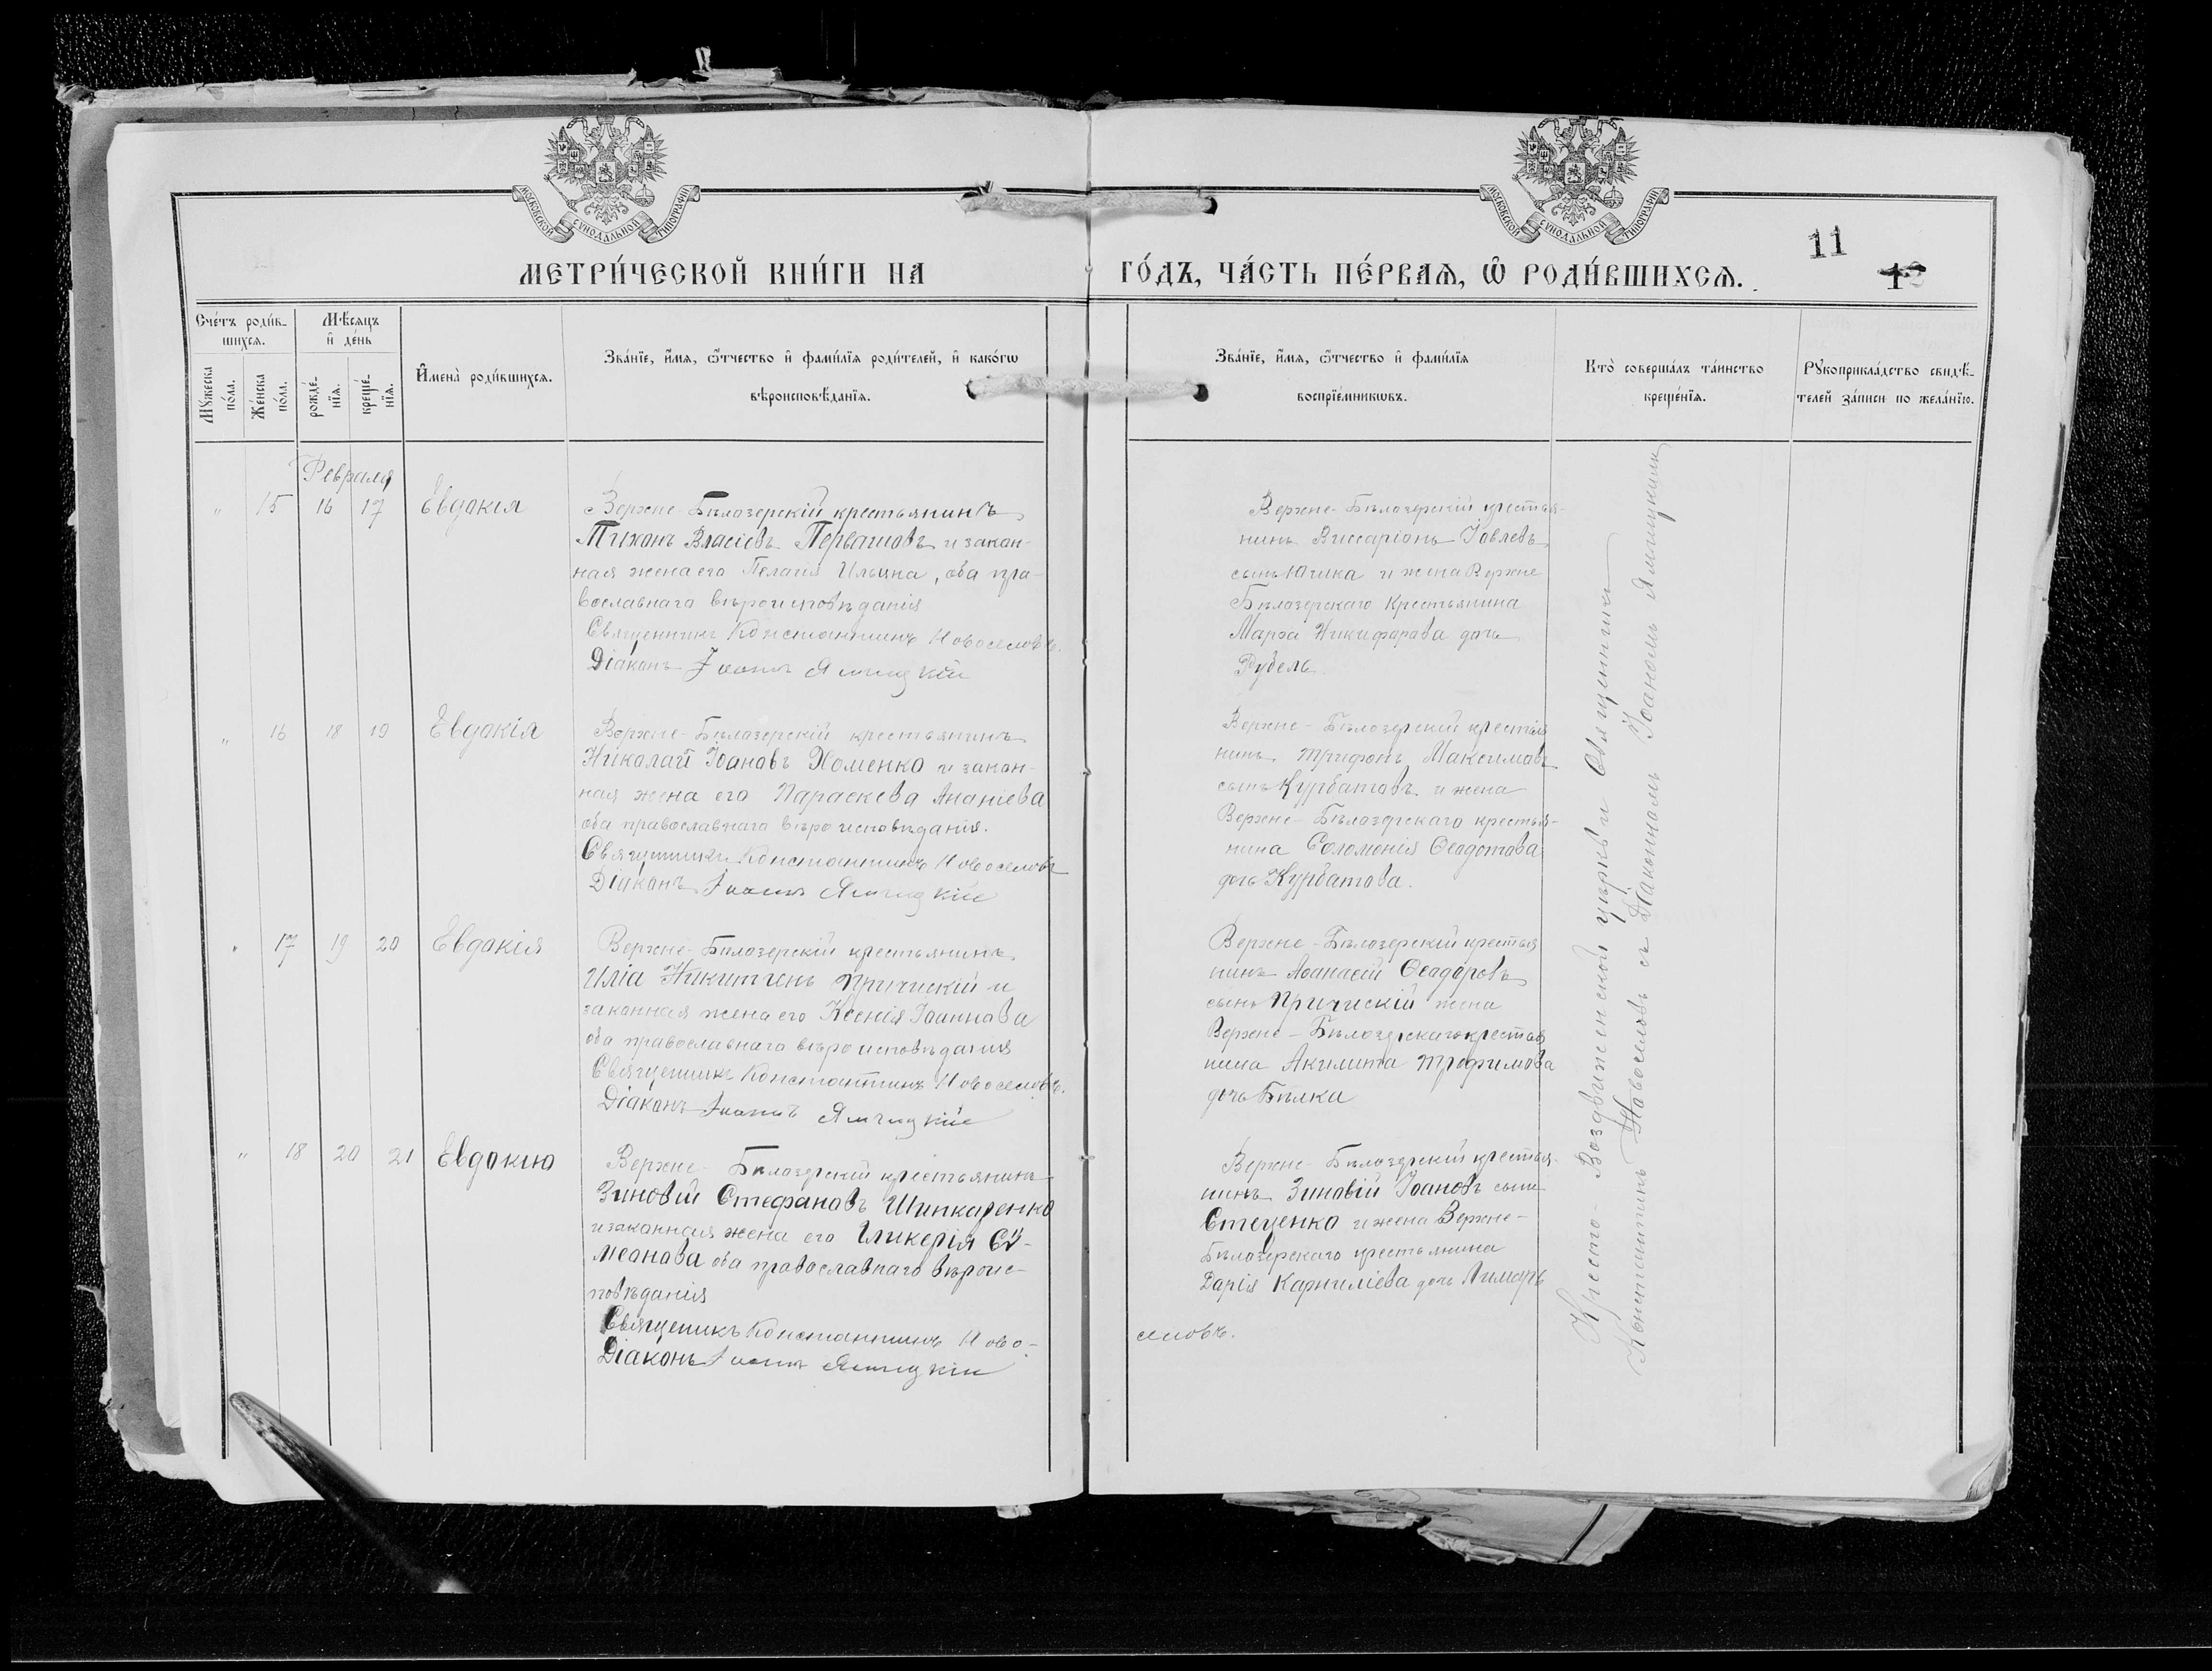 МОСКОВСКОЙ СѴНОДАЛЬНОЙ ТИПОГРАФІИ
МОСКОВСКОЙ СѴНОДАЛЬНОЙ ТИПОГРАФІИ
11
МЕТРИ́ЧЕСКОЙ КНИ́ГИ НА
ГО́ДЪ, ЧА́СТЬ ПЕ́РВАѦ, Ѡ҆ РОДИ́ВШИХСѦ.
Сче́тъ роди́в-
шихсѧ.
Мꙋ́жеска
по́ла.
Же́нска
по́ла.
Мѣ́сѧцъ
и҆ де́нь
рожде́-
нїѧ.
креще́-
нїѧ.
И҆мена̀ роди́вшихсѧ.
Зва́нїе, и҆́мѧ, ѻ҆́тчество и҆ фами́лїѧ роди́телей, и҆ како́гѡ
вѣроисповѣ́данїѧ.
Зва́нїе, и҆́мѧ, ѻ҆́тчество и҆ фами́лїѧ
воспрїе́мникѡвъ.
Кто̀ соверша́лъ та́инство
креще́нїѧ.
Рꙋкоприкла́дство свидѣ́-
телей за́писи по жела́нїю.
Февраля
" 15 16 17 Евдокія
Верхне-Бѣлозерскій крестьянинъ
Тихонъ Власіевъ Первашовъ и закон-
ная жена его Пелагія Ильина, оба пра-
вославнаго вѣроисповѣданія
Священникъ Константинъ Новоселовъ.
Діаконъ Іоаннъ Ямчицкій
Верхне-Бѣлозерскій крестья-
нинъ Виссаріонъ Іовлевъ
сынъ Югика и жена Верхне
Бѣлозерскаго крестьянина
Марѳа Никифорова дочь
Рубель.
" 16 18 19 Евдокія
Верхне-Бѣлозерскій крестьянинъ
Николай Іоановъ Хоменко и закон-
ная жена его Параскева Ананіева
оба православнаго вѣроисповѣданія.
Священникъ Константинъ Новоселовъ
Діаконъ Іоаннъ Ямчицкій
Верхне-Бѣлозерскій крестья
нинъ Трифонъ Максимовъ
сынъ Курбатовъ и жена
Верхне-Бѣлозерскаго крестья-
нина Соломонія Ѳеодотова
дочь Курбатова.
" 17 19 20 Евдокія
Верхне-Бѣлозерскій крестьянинъ
Иліа Никитинъ Причискій и
законная жена его Ксенія Іоаннова
оба православнаго вѣроисповѣданія
Священникъ Константинъ Новоселовъ.
Діаконъ Іоаннъ Ямчицкій
Верхне-Бѣлозерскій крестья
нинъ Аѳанасій Ѳеодоровъ
сынъ Причискій жена
Верхне-Бѣлозерскаго крестья
нина Акилина Трофимова
дочь Бѣлка
" 18 20 21 Евдокію
Верхне-Бѣлозерскій крестьянинъ
Зиновій Стефановъ Шинкаренко
и законная жена его Гликерія Сѵ-
меонова оба православнаго вѣроис-
повѣданія
Священникъ Константинъ Ново-
селовъ.
Діаконъ Іоаннъ Ямчицкій
Верхне-Бѣлозерскій крестья-
нинъ Зиновій Іоановъ сынъ
Стеценко и жена Верхне-
Бѣлозерскаго крестьянина
Дарія Карниліева дочь Лимарь
Кресто-Воздвиженской церкви Священникъ
Константинъ Новоселовъ съ Діакономъ Іоаномъ Ямчицкимъ